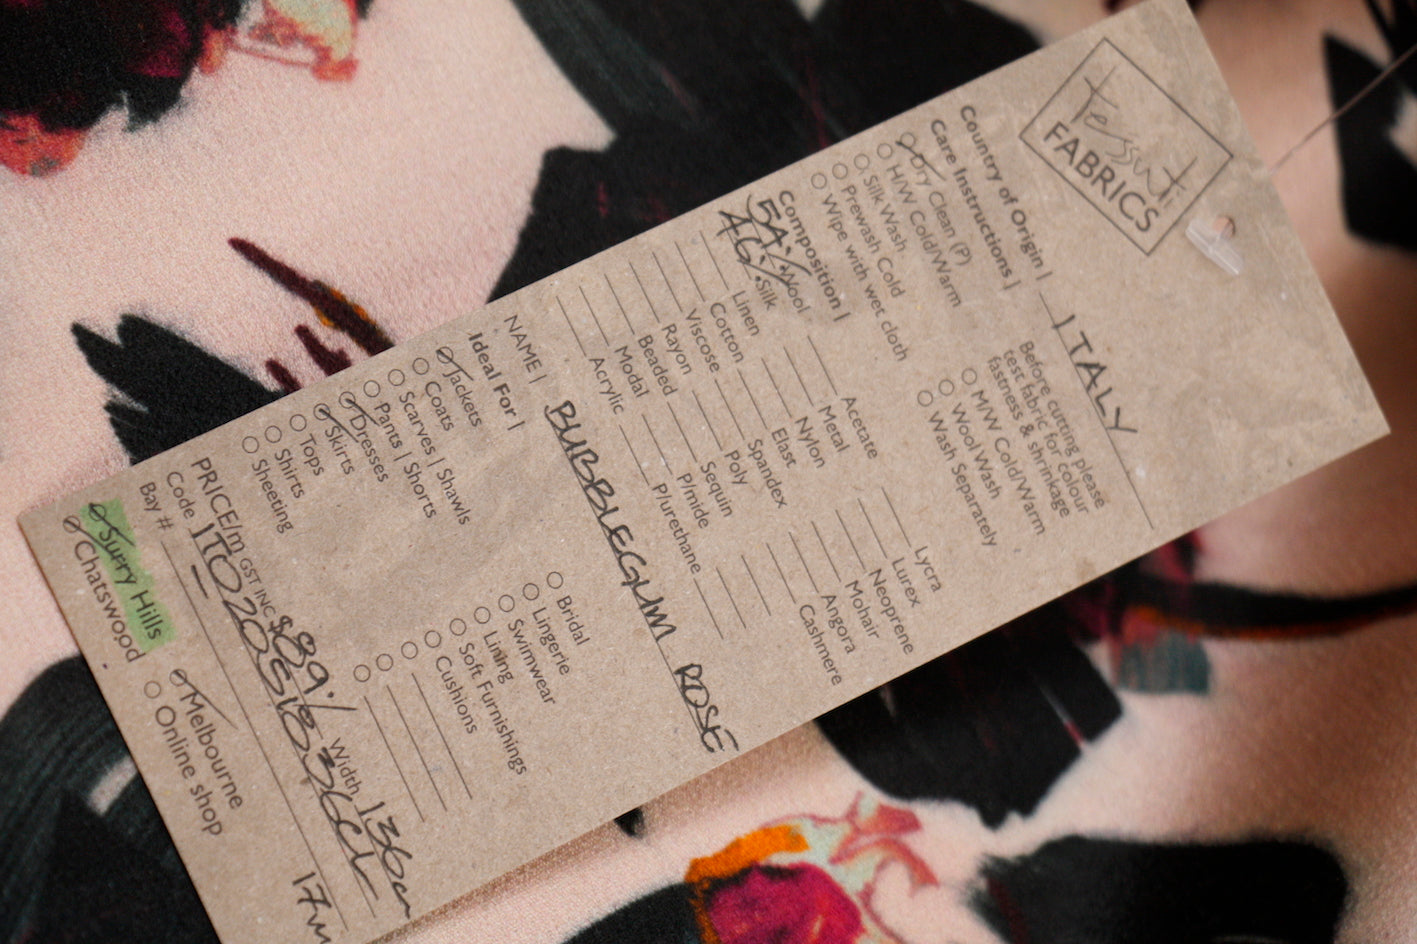 Tessuti
FABRICS
Country of Origin | ITALY
Care Instructions |
Dry Clean (P)
H/W Cold/Warm
Silk Wash
Prewash Cold
Wipe with wet cloth
Before cutting please
test fabric for colour
fastness & shrinkage
M/W Cold/Warm
Wool Wash
Wash Separately
Composition |
54% Wool
46% Silk
Linen
Cotton
Viscose
Rayon
Beaded
Modal
Acrylic
Acetate
Metal
Nylon
Elast
Spandex
Poly
Sequin
P/mide
P/urethane
Lycra
Lurex
Neoprene
Mohair
Angora
Cashmere
NAME | BUBBLEGUM ROSE
Ideal For |
Jackets
Coats
Scarves | Shawls
Pants | Shorts
Dresses
Skirts
Tops
Shirts
Sheeting
Bridal
Lingerie
Swimwear
Lining
Soft Furnishings
Cushions
PRICE/m GST INC $89 Width 136cm
Code
Bay #
17m
Surry Hills
Chatswood
Melbourne
Online shop